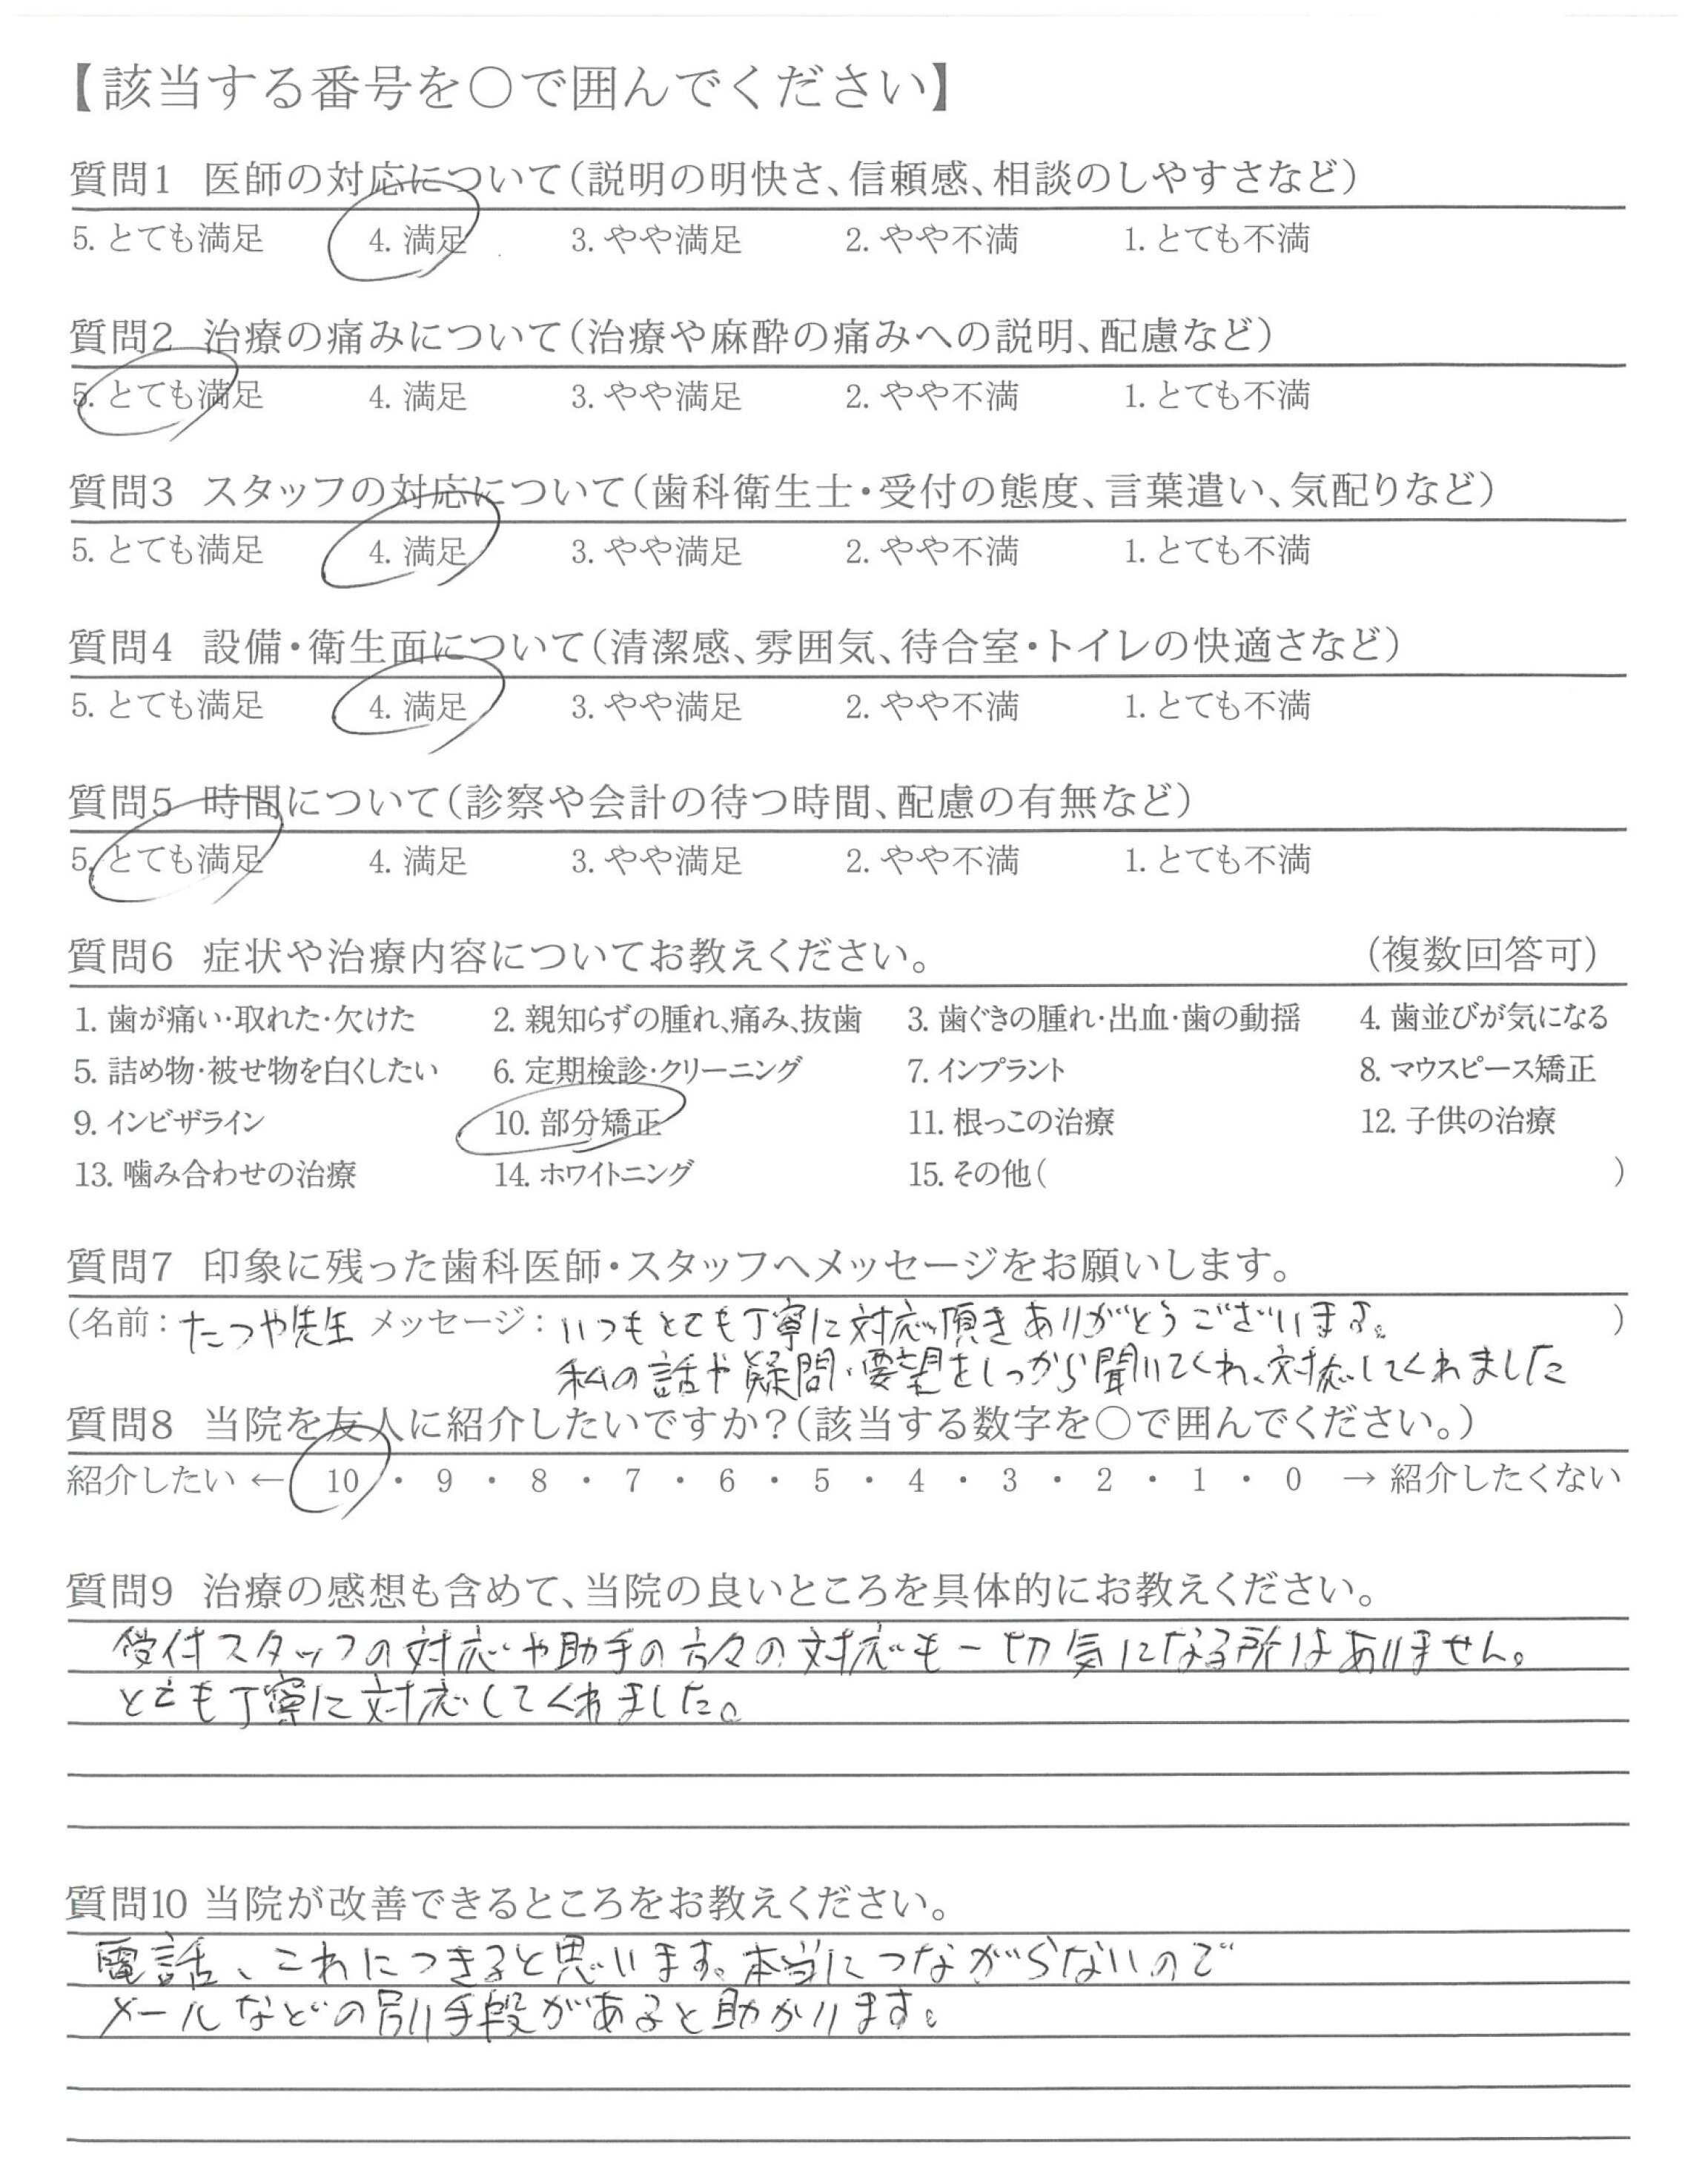 【該当する番号を○で囲んでください】
質問1 医師の対応について（説明の明快さ、信頼感、相談のしやすさなど）
5. とても満足 4. 満足 3. やや満足 2. やや不満 1. とても不満
質問2 治療の痛みについて（治療や麻酔の痛みへの説明、配慮など）
5. とても満足 4. 満足 3. やや満足 2. やや不満 1. とても不満
質問3 スタッフの対応について（歯科衛生士・受付の態度、言葉遣い、気配りなど）
5. とても満足 4. 満足 3. やや満足 2. やや不満 1. とても不満
質問4 設備・衛生面について（清潔感、雰囲気、待合室・トイレの快適さなど）
5. とても満足 4. 満足 3. やや満足 2. やや不満 1. とても不満
質問5 時間について（診察や会計の待つ時間、配慮の有無など）
5. とても満足 4. 満足 3. やや満足 2. やや不満 1. とても不満
質問6 症状や治療内容についてお教えください。 （複数回答可）
1. 歯が痛い・取れた・欠けた 2. 親知らずの腫れ、痛み、抜歯 3. 歯ぐきの腫れ・出血・歯の動揺 4. 歯並びが気になる
5. 詰め物・被せ物を白くしたい 6. 定期検診・クリーニング 7. インプラント 8. マウスピース矯正
9. インビザライン 10. 部分矯正 11. 根っこの治療 12. 子供の治療
13. 噛み合わせの治療 14. ホワイトニング 15. その他（ ）
質問7 印象に残った歯科医師・スタッフへメッセージをお願いします。
（名前：たつや先生 メッセージ：いつもとても丁寧に対応頂きありがとうございます。 ）
私の話や疑問・要望をしっから聞いてくれ、対応してくれました
質問8 当院を友人に紹介したいですか？（該当する数字を○で囲んでください。）
紹介したい ← 10 ・ 9 ・ 8 ・ 7 ・ 6 ・ 5 ・ 4 ・ 3 ・ 2 ・ 1 ・ 0 → 紹介したくない
質問9 治療の感想も含めて、当院の良いところを具体的にお教えください。
受付スタッフの対応や助手の方々の対応も一切気になる所はありません。
とても丁寧に対応してくれました。
質問10 当院が改善できるところをお教えください。
電話、これにつきると思います。本当につながらないので
メールなどの別手段があると助かります。